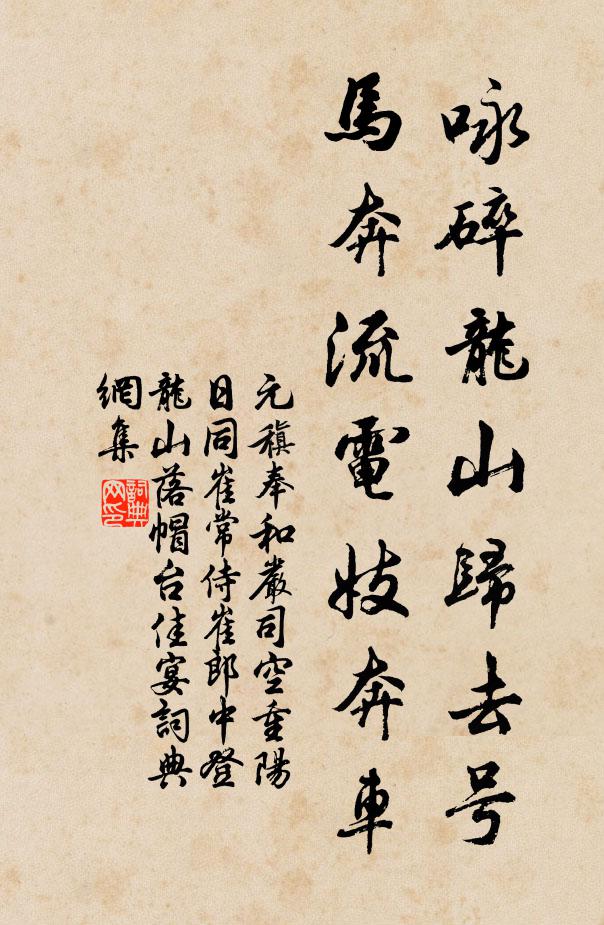 咏碎龍山歸去号
馬奔流電妓奔車
元稹奉和嚴司空重陽
日同崔常侍崔郎中登
龍山落帽台佳宴詞典
網集
詞典
网印